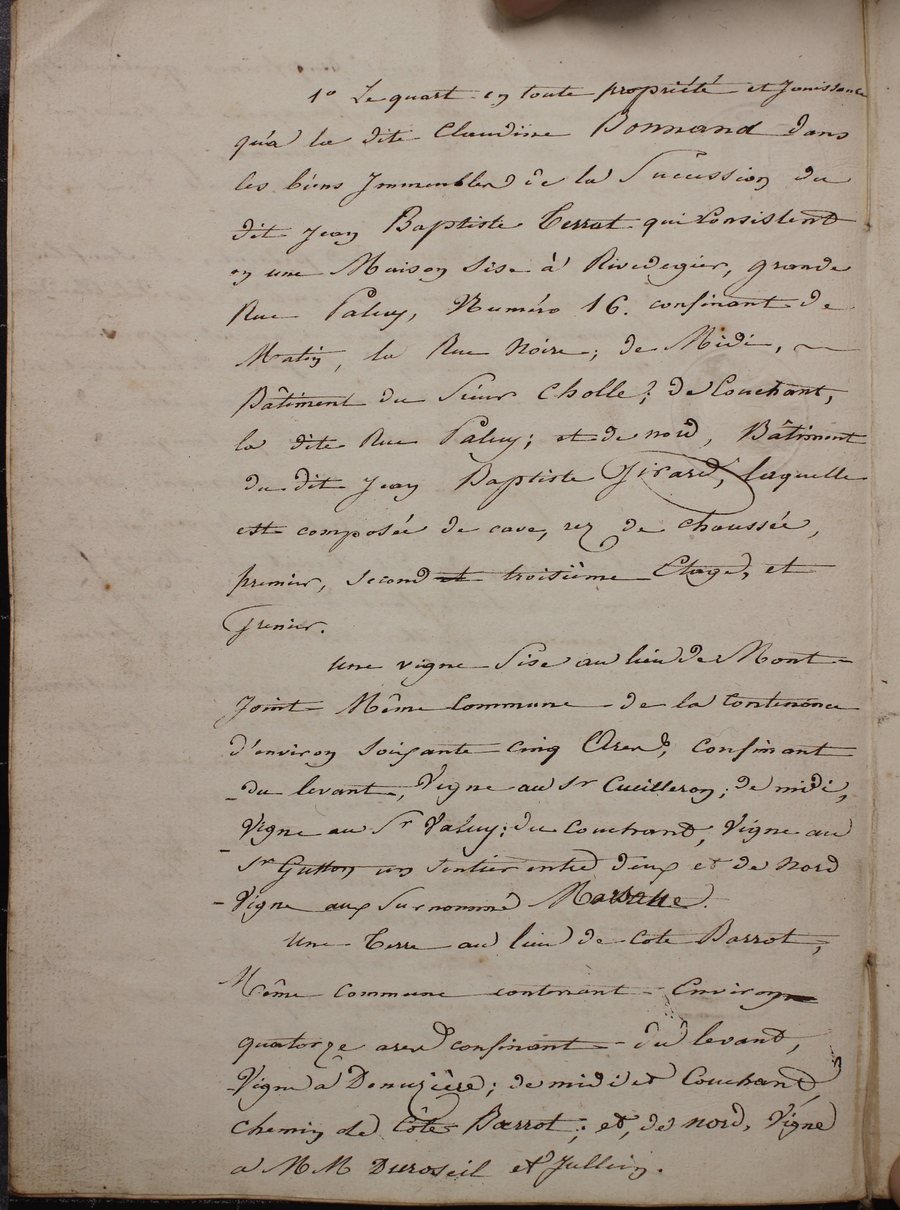 1° Le quart en toute propriété et Jouissance
qu'a la dite Claudine Bonnand dans
les biens Immeubles de la Succession du
dit Jean Baptiste Terrat qui Consistent
en une Maison Sise à Rivedegier, grande
Rue Paluy, Numéro 16. confinant de
Matin, la Rue Noire; de Midi,
Bâtiment du Sieur Cholle; de Couchant,
la dite Rue Paluy; et de nord, Bâtiment
du dit Jean Baptiste Girard, laquelle
est composée de cave, rez de chaussée,
premier, second et troisième Etages, et
Grenier.
Une vigne Sise au lieu de Mont-
Joint Même Commune de la contenance
d'environ soixante cinq Ares, confinant
du levant, Vigne au Sr Cueilleron; de midi,
Vigne au Sr Valuy; du Couchand, Vigne au
Sr Gutton un Sentier entre deux et de Nord
Vigne aux Surnommé
Une Terre au lieu de Cote Barrot,
Même commune contenant Environ
quatorze ares confinant du levant,
Vigne à Denuzière; de midi et Couchand,
Chemin de Côte Barrot; et, de Nord, Vigne
a MM Duroseil et Jullien.